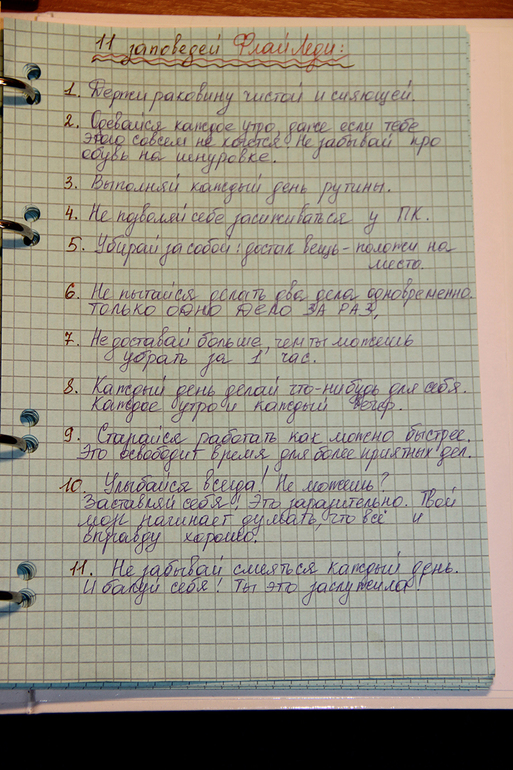 11 заповедей ФлайЛеди:
1. Держи раковину чистой и сияющей.
2. Одевайся каждое утро, даже если тебе
этого совсем не хочется. Не забывай про
обувь на шнуровке.
3. Выполняй каждый день рутины.
4. Не подволяй себе засиживаться у ПК.
5. Убирай за собой: достал вещь - положи на
место.
6. Не пытайся делать два дела одновременно.
ТОЛЬКО ОДНО ДЕЛО ЗА РАЗ,
7. Не доставай больше, чем ты можешь
убрать за 1 час.
8. Каждый день делай что-нибудь для себя.
Каждое утро и каждый вечер.
9. Старайся работать как можно быстрее.
Это освободит время для более приятных дел.
10. Улыбайся всегда! Не можешь?
Заставляй себя! Это заразительно. Твой
мозг начинает думать, что всё и
вправду хорошо.
11. Не забывай смеяться каждый день.
И балуй себя! Ты это заслужила!